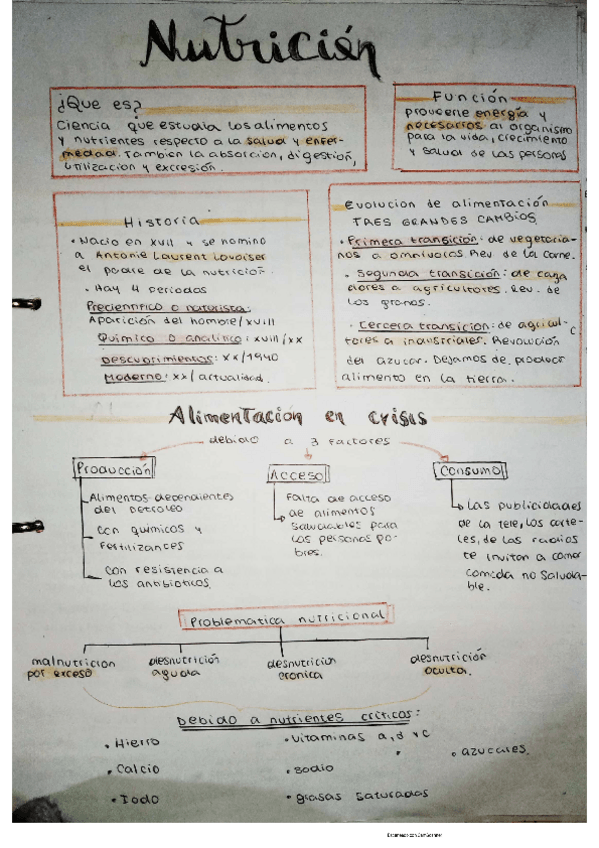 Nutrición
¿Que es?
Ciencia que estudia los alimentos
y nutrientes respecto a la salud y enfer-
medad. Tambien la absorcion, digestión,
utilizacion y excresión.
Función
proveerle energía y
necesarios al organismo
para la vida, crecimiento
y salud de las personas
Historia
• Nacio en XVII y se nomino
a Antonie Laurent Lavoiser
el padre de la nutrición.
• Hay 4 periodos
Precientifico o naturista:
Aparición del hombre/xviii
Quimico o analitico: xviii/xx
Descubrimientos: xx/1940
Moderno: xx/actualidad.
Evolucion de alimentación
TRES GRANDES CAMBIOS.
• Primera transición: de vegetaria-
nos a omnivoros. Rev de la carne.
• Segunda transición: de caza
dores a agricultores. Rev. de
los granos.
• Cercera transicion: de agricul-
tores a industriales. Revolución
del azucar. Dejamos de producir
alimento en la tierra.
Alimentación en crisis
debido a 3 factores
Producción
Alimentos dependientes
del petroleo
con quimicos y
fertilizances
con resistencia a
los antibioticos.
Acceso
Falta de acceso
de alimentos
saludables para
las personas po-
bres.
Consumo
Las publicidades
de la tele, los carte-
les, de las radios
te invitan a comer
comida no saluda-
ble.
Problematica nutricional
malnutricion
por exceso
desnutrición
aguda
desnutricion
cronica
desnutrición
oculta.
Debido a nutrientes criticos:
• Hierro
• Calcio
• Iodo
• Vitaminas a, d y c
• sodio
• grasas saturadas
• azucares.
Escaneado con CamScanner